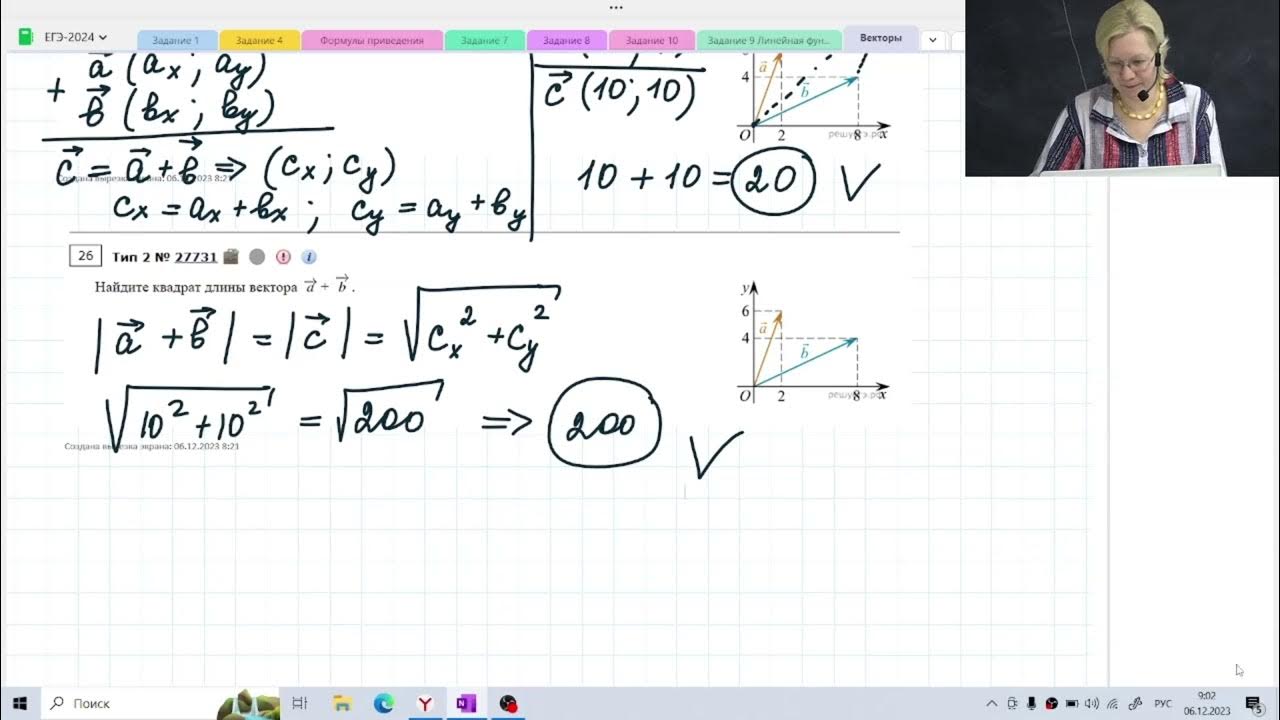 ЕГЭ-2024
Задание 1
Задание 4
Формулы приведения
Задание 7
Задание 8
Задание 10
Задание 9 Линейная фун...
Векторы
+ a⃗ (aₓ; a_y)
b⃗ (bₓ; b_y)
c⃗ = a⃗ + b⃗ ⇒ (cₓ; c_y)
Создана вырезка экрана: 06.12.2023 8:21
cₓ = aₓ + bₓ ; c_y = a_y + b_y
c⃗ (10; 10)
10 + 10 = 20 ✓
4
a⃗
b⃗
O 2 8 x
26 Тип 2 № 27731
Найдите квадрат длины вектора a⃗ + b⃗.
|a⃗ + b⃗| = |c⃗| = √(cₓ² + c_y²)
√(10² + 10²) = √200 ⇒ 200 ✓
Создана вырезка экрана: 06.12.2023 8:21
y
6
4
a⃗
b⃗
O 2 8 x
Поиск
РУС
9:02
06.12.2023
5